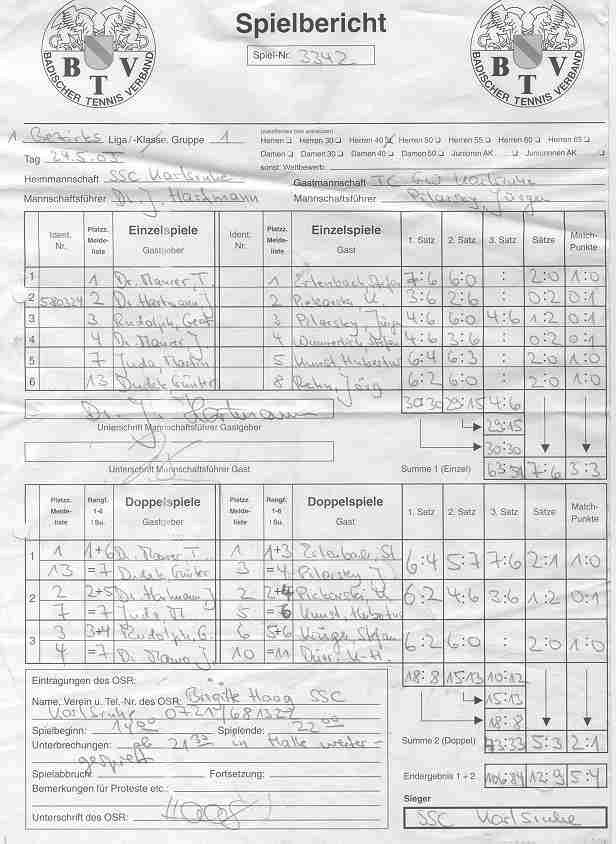 Spielbericht
BADISCHER TENNIS VERBAND
BTV
Spiel-Nr. 3342
BADISCHER TENNIS VERBAND
BTV
1. Bezirks Liga/-Klasse, Gruppe 1
(zutreffendes bitte ankreuzen)
Herren Herren 30 Herren 40 Herren 50 Herren 55 Herren 60 Herren 65
Tag 24.5.03
Damen Damen 30 Damen 40 Damen 50 Junioren AK Juniorinnen AK
sonst. Wettbewerb
Heimmannschaft SSC Karlsruhe Gastmannschaft TC Karlsruhe
Mannschaftsführer Dr. J. Hartmann Mannschaftsführer Pilarsky, Jürgen
Ident. Nr. Platzz. Melde-liste Einzelspiele Gastgeber Ident. Nr. Platzz. Melde-liste Einzelspiele Gast 1. Satz 2. Satz 3. Satz Sätze Match-Punkte
1 1 Dr. Maurer, T. 1 Erlenbach, 7:6 6:0 : 2:0 1:0
2 2 Dr. Hartmann J 2 Piekarski, K 3:6 2:6 : 0:2 0:1
3 3 Rudolph, Gerof 3 Pilarsky, Jürgen 4:6 6:0 4:6 1:2 0:1
4 4 Dr. Maurer J 4 Stefan 4:6 3:6 : 0:2 0:1
5 7 Juda, Martin 5 Kunst, Hubertus 6:4 6:3 : 2:0 1:0
6 13 Dudek Günter 8 Rehn, Jörg 6:2 6:0 : 2:0 1:0
30:30 29:15 4:6
Dr. J. Hartmann
Unterschrift Mannschaftsführer Gastgeber
29:15
30:30
Unterschrift Mannschaftsführer Gast Summe 1 (Einzel) 63:51 7:6 3:3
Platzz. Melde-liste Rangf. 1-6 / Su. Doppelspiele Gastgeber Platzz. Melde-liste Rangf. 1-6 / Su. Doppelspiele Gast 1. Satz 2. Satz 3. Satz Sätze Match-Punkte
1 1 1+6 Dr. Maurer T. 1 1+3 St. 6:4 5:7 7:6 2:1 1:0
13 =7 Dudek Günter 3 =4 Pilarsky J.
2 2 2+5 Dr. Hartmann J 2 2+4 Piekarski, K 6:2 4:6 3:6 1:2 0:1
7 =7 Juda M. 5 =6 Kunst, Hubertus
3 3 3+4 Rudolph, G. 6 5+6 Krüger, Stefan 6:2 6:0 : 2:0 1:0
4 =7 Dr. Maurer J 10 =11 K-H.
Eintragungen des OSR: 18:8 15:13 10:12
Name, Verein u. Tel.-Nr. des OSR: Birgitte Haag SSC
15:13
Karlsruhe 0721/681327
18:8
Spielbeginn: 14.00 Spielende: 22.00
Unterbrechungen: ab 21.30 in Halle weiter-
Summe 2 (Doppel) 43:33 5:3 2:1
gespielt
Spielabbruch: Fortsetzung:
Endergebnis 1 + 2 106:84 12:9 5:4
Bemerkungen für Proteste etc.:
Sieger
Unterschrift des OSR: Haag
SSC Karlsruhe